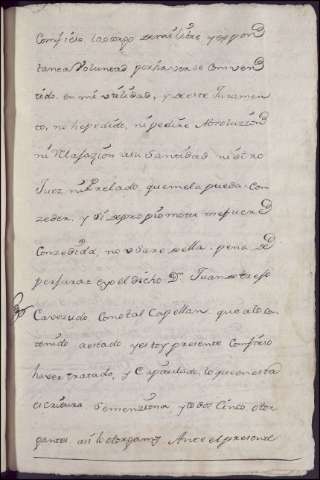 Confieso la otorgo de mi libre y espon
tanea Voluntad por haverse Conven
tido en mi utilidad, y de este Juramen
to, no he pedido, ni pedire Absoluzion
ni Relaxazion a su Santidad ni otro
Juez ni Prelado que me la pueda Con
zeder, y si de propio motu me fuere
Conzedida, no usare de ella pena de
perjura: e yo el dicho Dn. Juan
Cavezudo Como tal Capellan que a lo con
tenido he estado y estoy presente Confieso
haver tratado, y Capitulado, lo que en esta
escriptura se menziona y todos Cinco otor
gantes asi lo otorgamos Ante el presente